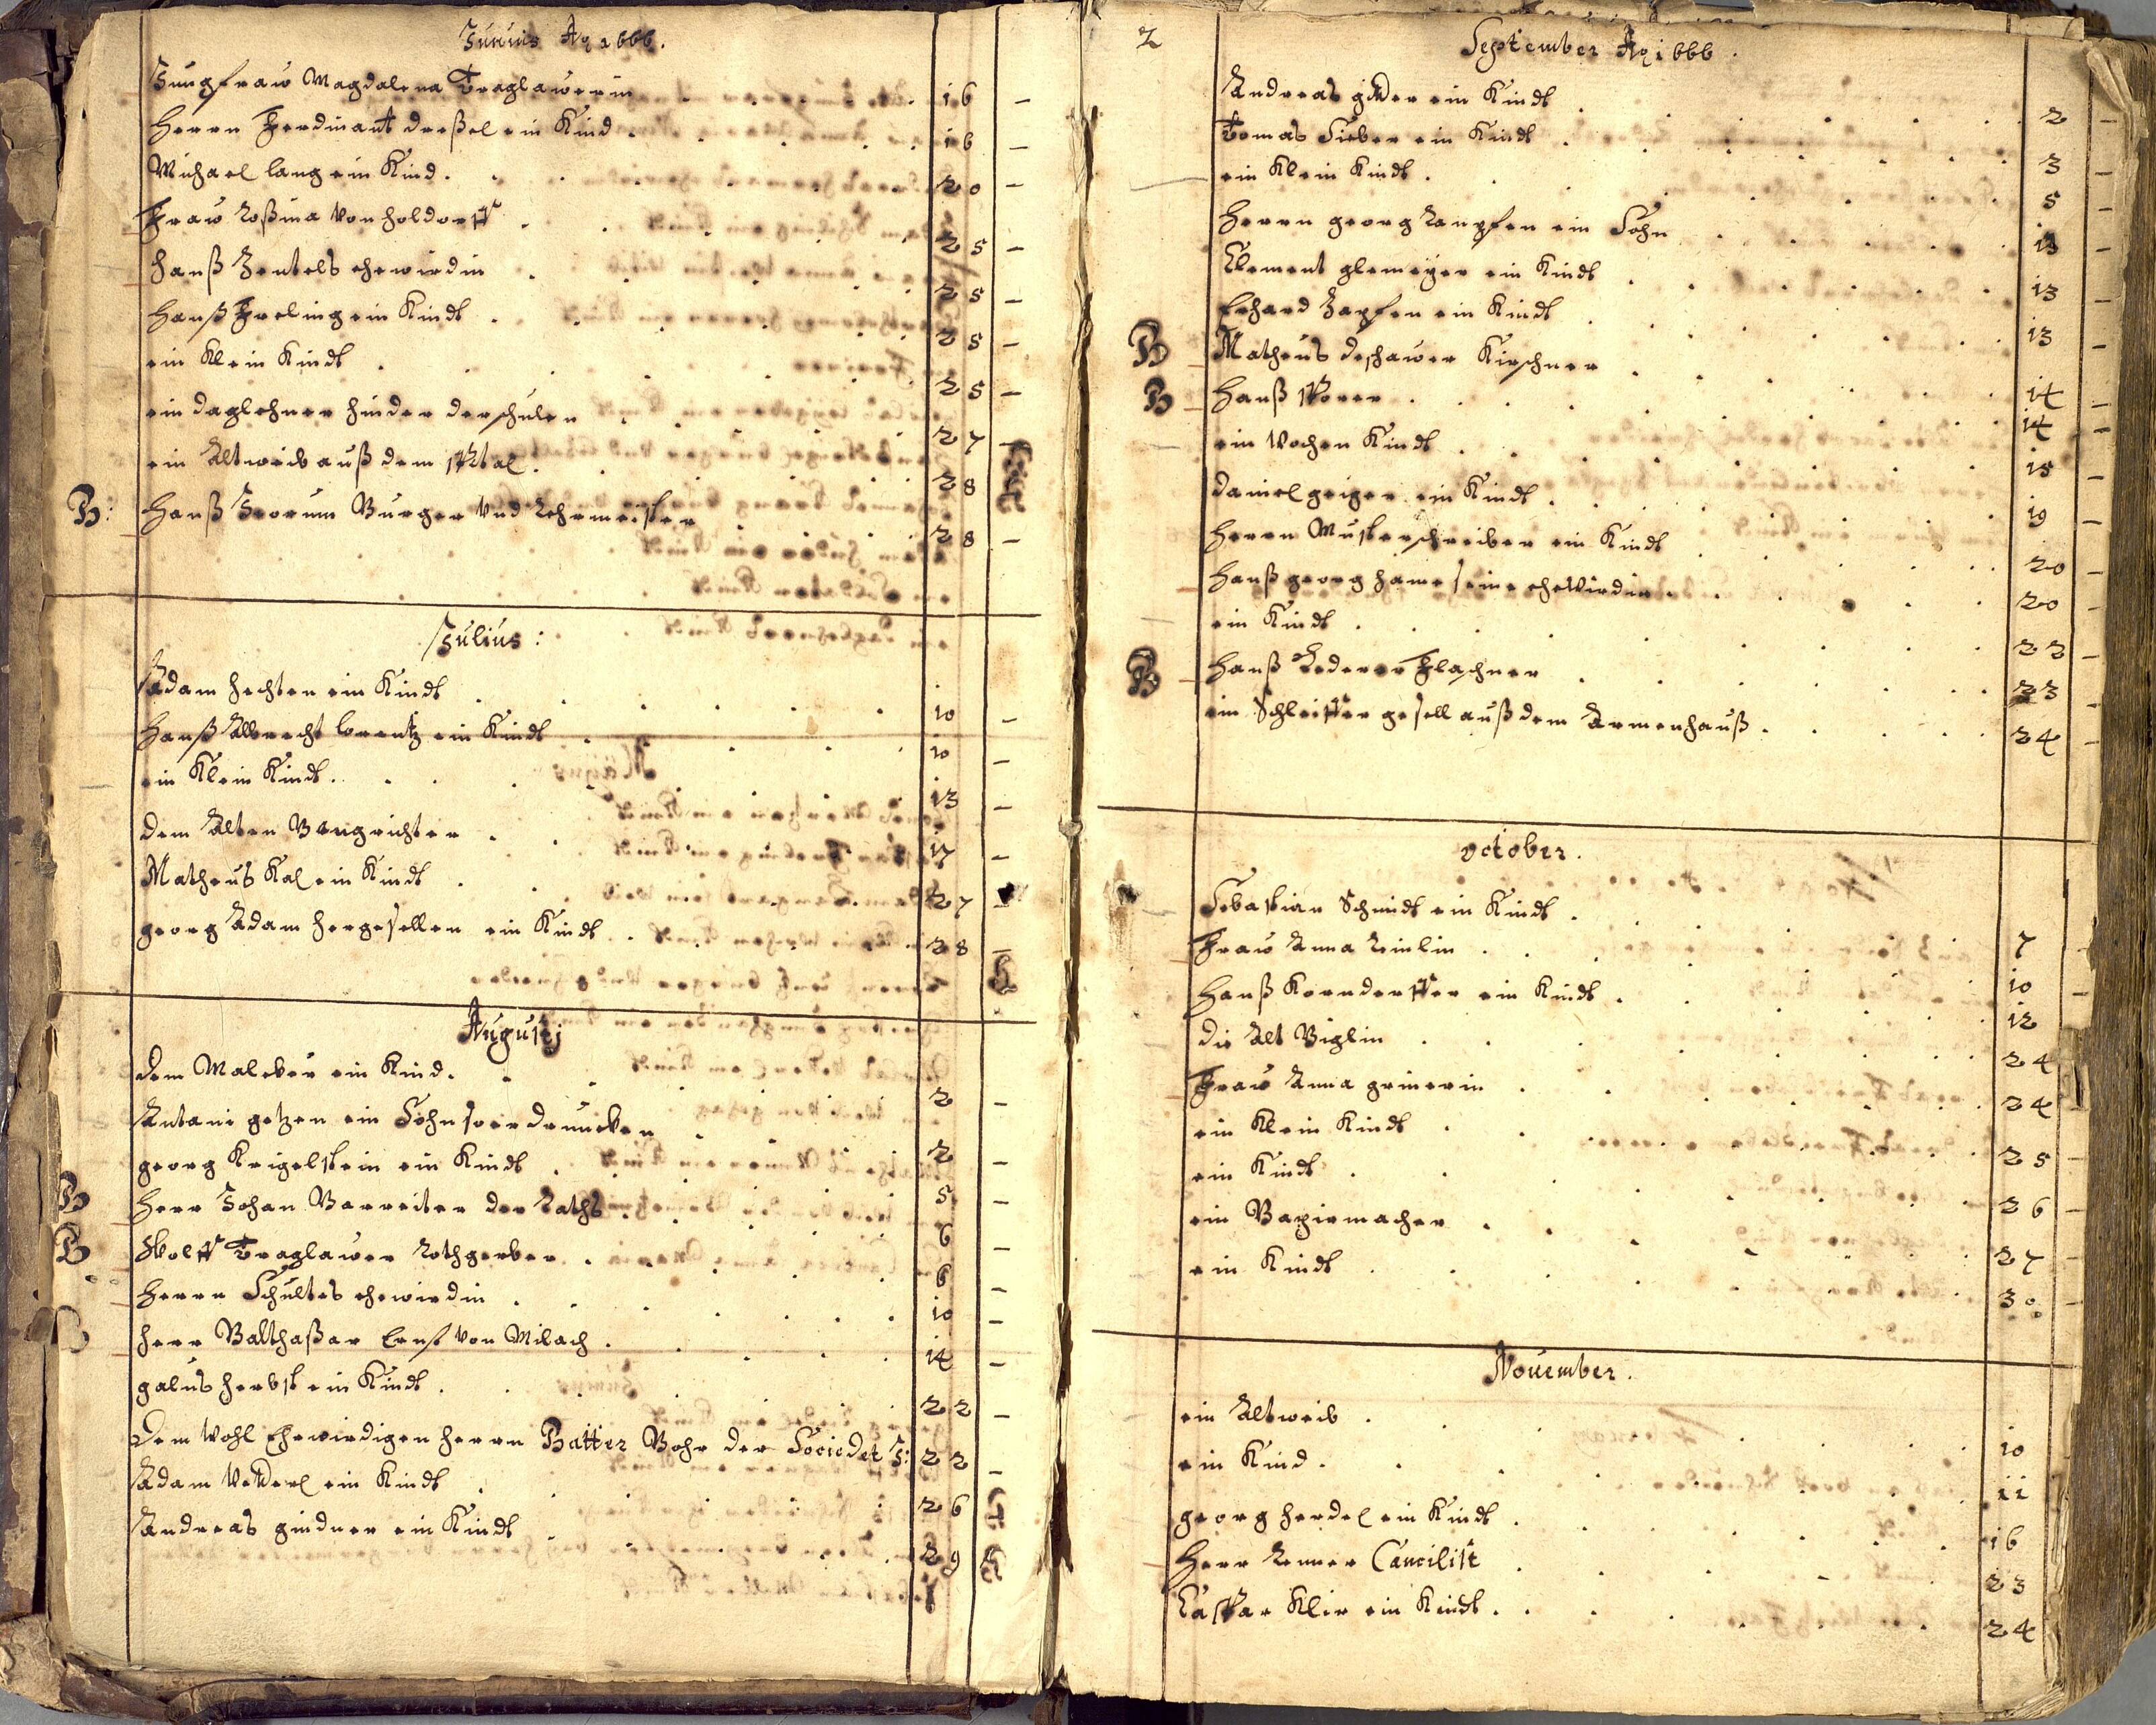 Junius Ao 1666.
Jungfraw Magdalena Traglawerin . . . . 16 –
Herrn Ferdinant dreßel ein Kind . . . . 16 –
Michael lang ein Kind . . . . 20 –
Fraw Roßina Von holdorff . . . . 25 –
Hanß Zentels ehewirdin . . . . 25 –
Hanß Freling ein Kindt . . . . 25 –
ein Klein Kindt . . . . 25 –
ein daglehner hinder der schulen . . . . 27 –
ein Altweib auß dem Spital . . . . 28
B: Hanß Jeorum Burger Vnd Lehrmeister 28 –
Julius:
Adam hechten ein Kindt . . . . 10 –
Hanß Albrecht lorentz ein Kindt . . . . 10 –
ein Klein Kindt . . . . 13 –
dem Alten Bangrichter . . . . 17 –
Matheus Kal ein Kindt . . . . 27 –
georg Adam hergesellen ein Kindt . . . . 28 –
Augusti
dem Maleber ein Kind . . . . 2 –
Antani getzen ein Sohn so erdruncken . . . . 2 –
georg Krigelstein ein Kindt . . . . 5 –
B Herr Johan Barreiter der Raths . . . . 6 –
B Wolff Traglawer Rothgerber . . . . 6 –
Herrn Schultes ehewirdin . . . . 10 –
B herr Balthaßar Ernst Von Milach . . . . 14 –
galus herbst ein Kindt . . . . 22 –
Dem Wohl Ehrwirdigen herrn Patter Bohr der Societet J: 22 –
Adam Vetterl ein Kindt . . . . 26
Andreas gindner ein Kindt . . . . 29
2
September Ao 1666.
Andreas gitter ein Kindt . . . . 2 –
Tomas Sieber ein Kindt . . . . 3 –
ein Klein Kindt . . . . 5 –
Herrn georg Rampfen ein Sohn . . . . 13 –
Clement glemeyer ein Kindt . . . . 13 –
Erhard Zapfen ein Kindt . . . . 13 –
B Matheus deschawer Kirschner . . . . 14 –
B Hanß Porer . . . . 14 –
ein Wochen Kindt . . . . 15 –
Daniel geiger ein Kindt . . . . 19 –
Herrn Musterschreiber ein Kindt . . . . 20 –
Hanß georg hame seine ehewirdin . . . . 20 –
ein Kindt . . . . 22 –
B Hanß Lederer Flaschner . . . . 23 –
ein Schleiffer gesell auß dem Armenhauß . . . . 24 –
october.
Sebastian Schmidt ein Kindt . . . . 7
Fraw Anna Zeinlin . . . . 10 –
Hanß Korndorffer ein Kindt . . . . 12
die Alt Biglin . . . . 24 –
Fraw Anna grinerin . . . . 24 –
ein Klein Kindt . . . . 25 –
ein Kindt . . . . 26 –
ein Bapirmacher . . . . 27 –
ein Kindt . . . . 30 –
Nouember.
ein Altweib . . . . 10
ein Kind . . . . 11
georg herdel ein Kindt . . . . 16
Herr Renner Cancilist . . . . 23
Casspar Klir ein Kindt . . . . 24